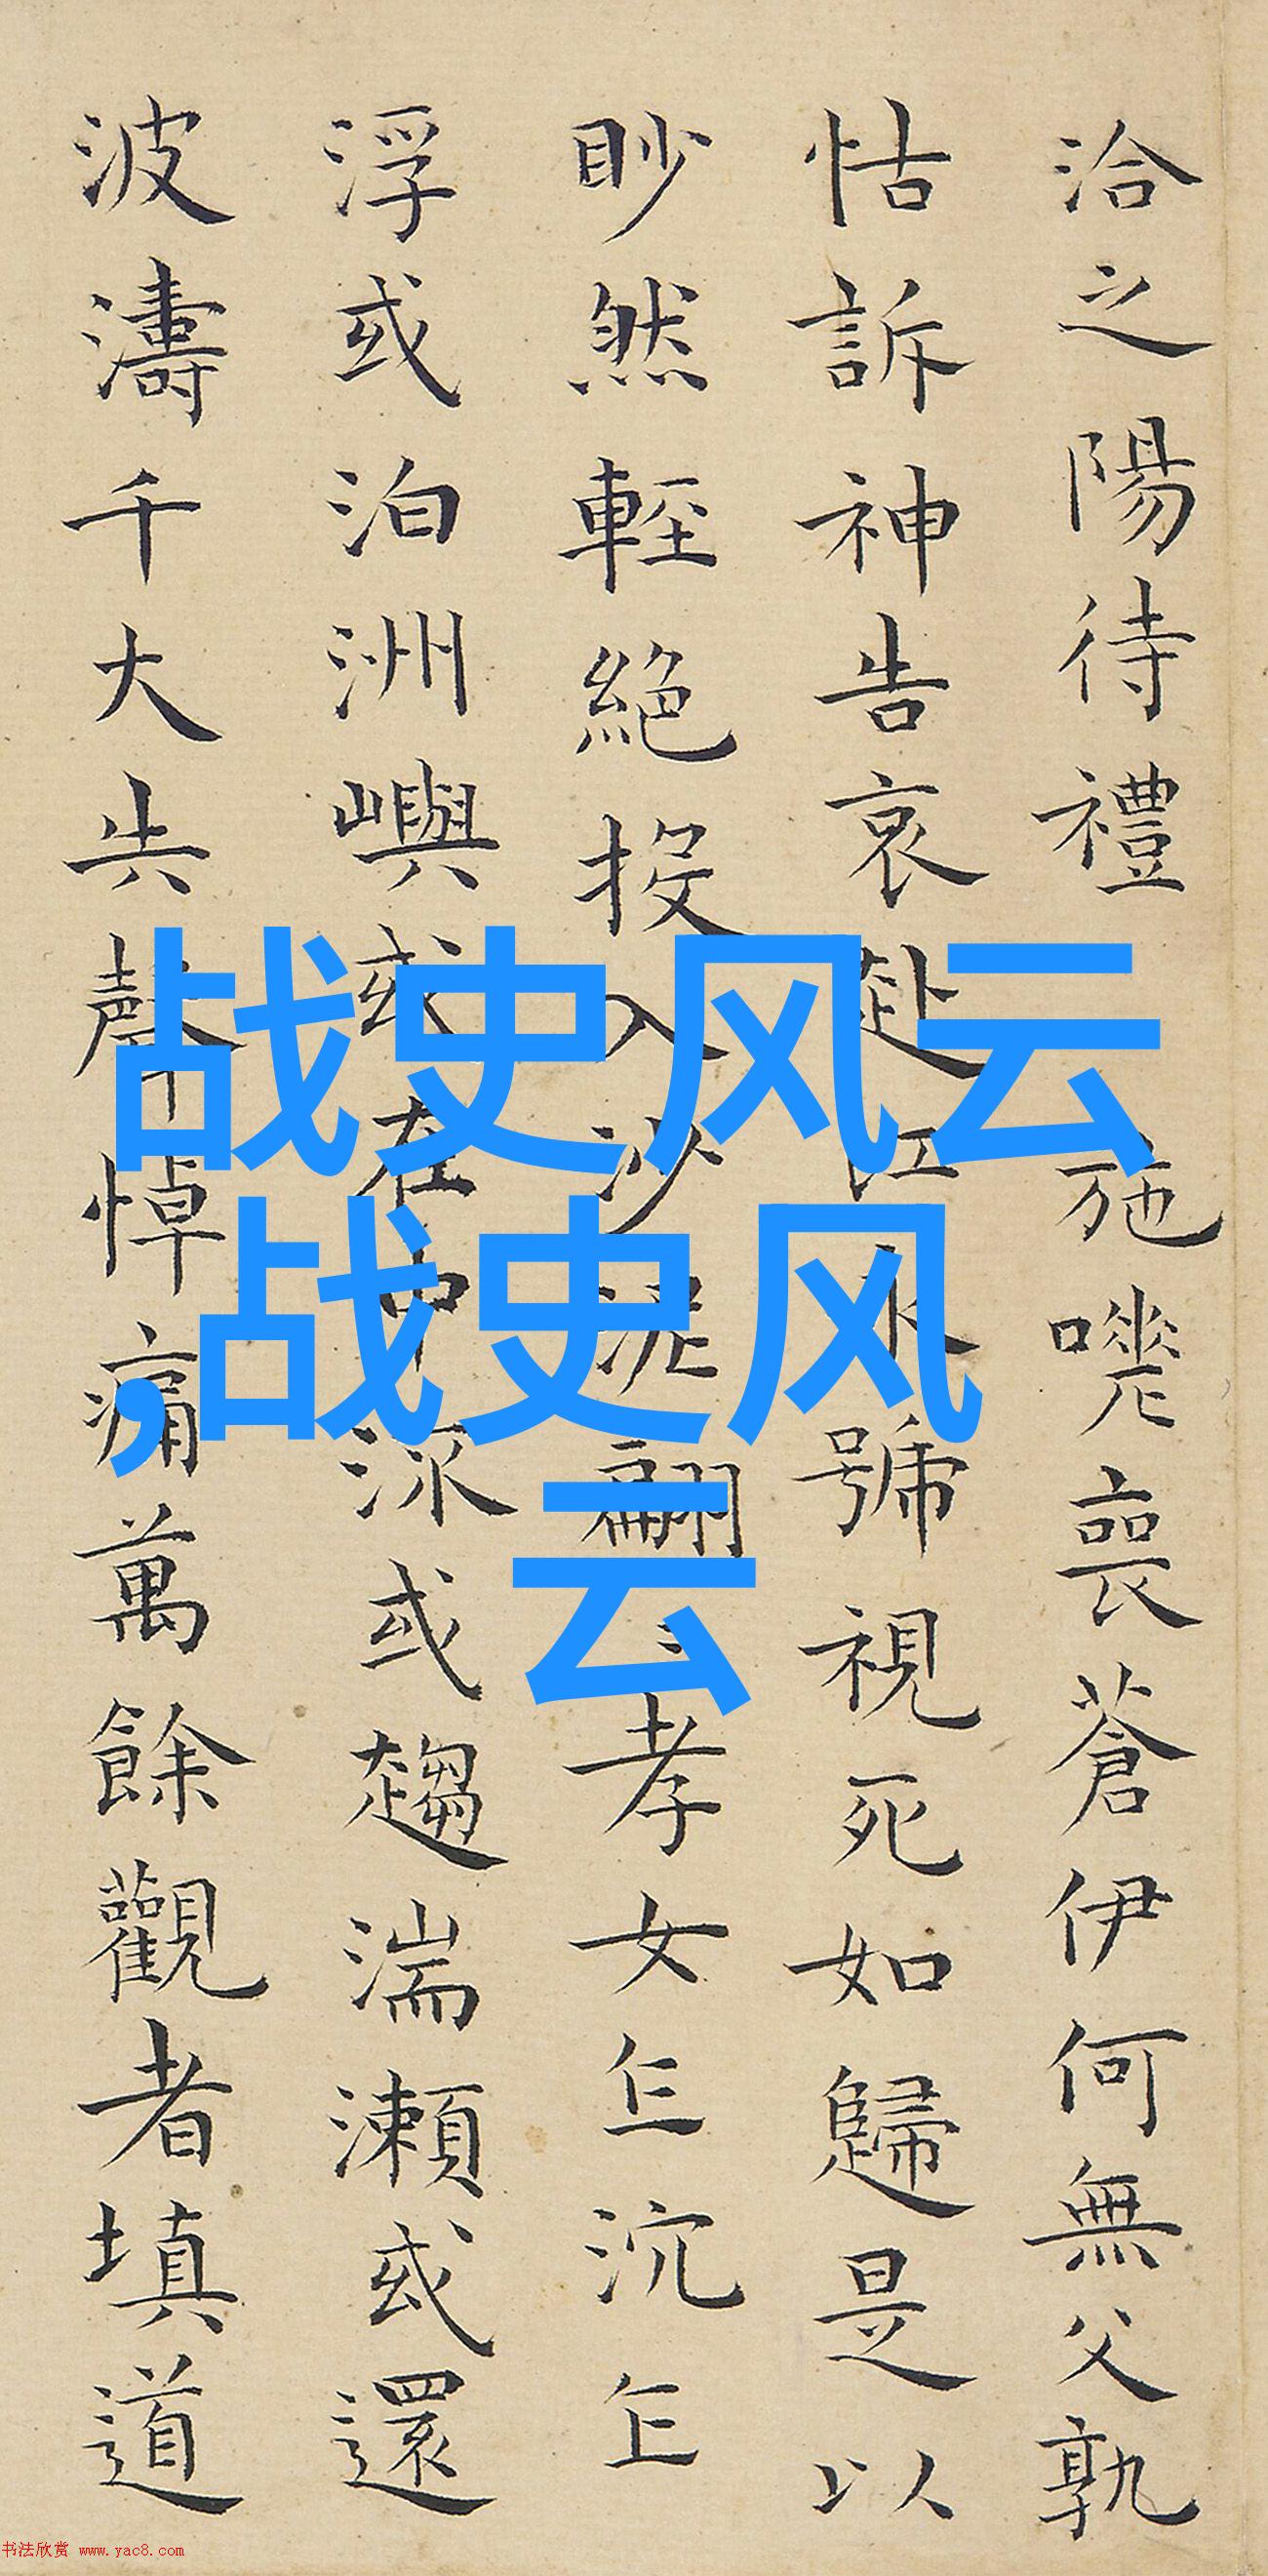 洽之陽待禮施嗟喪蒼伊何無父孰
怙訴神告哀赴江永號視死如歸是以
眇然輕絕投入沙泥翩〻孝女乍沉乍
浮或泊洲嶼或在中流或趨湍瀨或還
波濤千大失聲悼痛萬餘觀者填道
战史风云
,战史风
云
书法欣赏 www.yac8.com